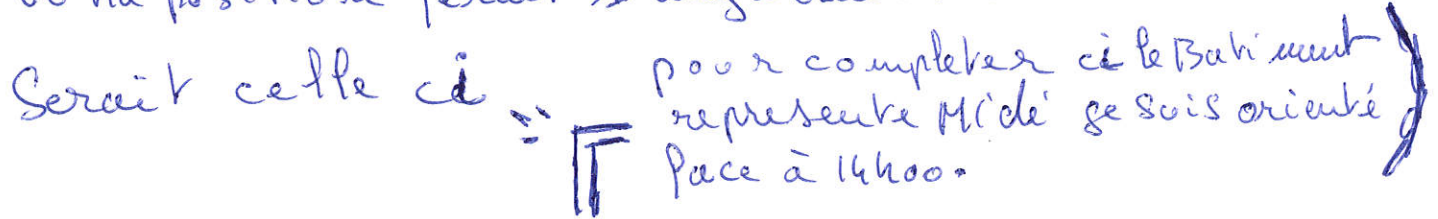 Serait celle ci
pour completer ci le Batiment
represente Midi ge suis orienté
face à 14h00.